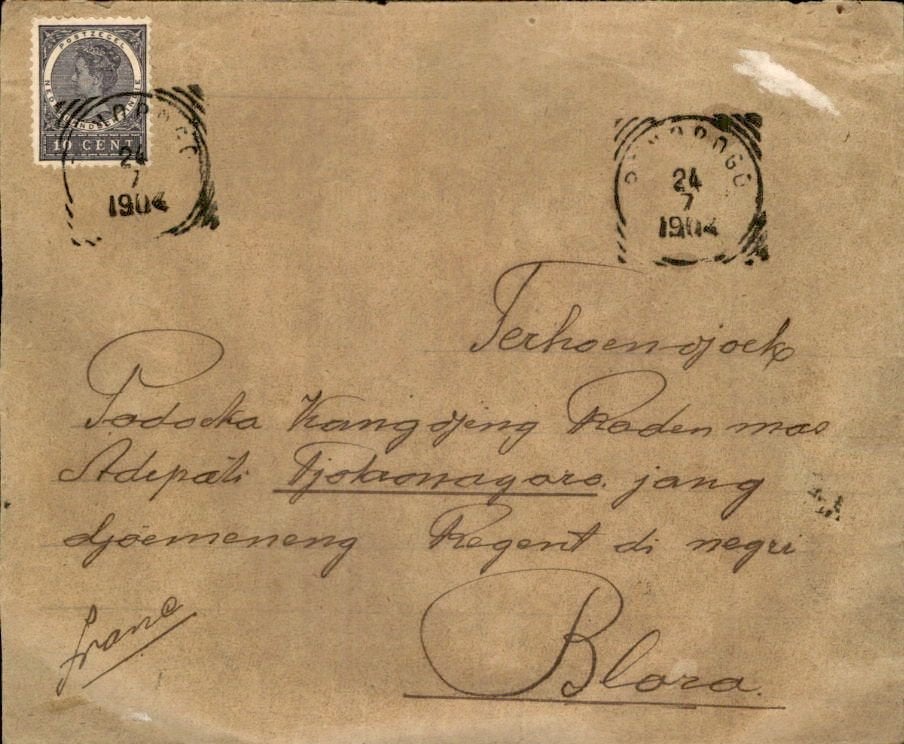 POSTZEGEL
NEDERLANDSCH-INDIE
10 CENT
24
7
1904
PONOROGO
24
7
1904
Terhoendjoek
Padoeka Kangdjeng Raden mas
Adipati Tjokronagoro. jang
djoemeneng Regent di negri
Blora.
franco